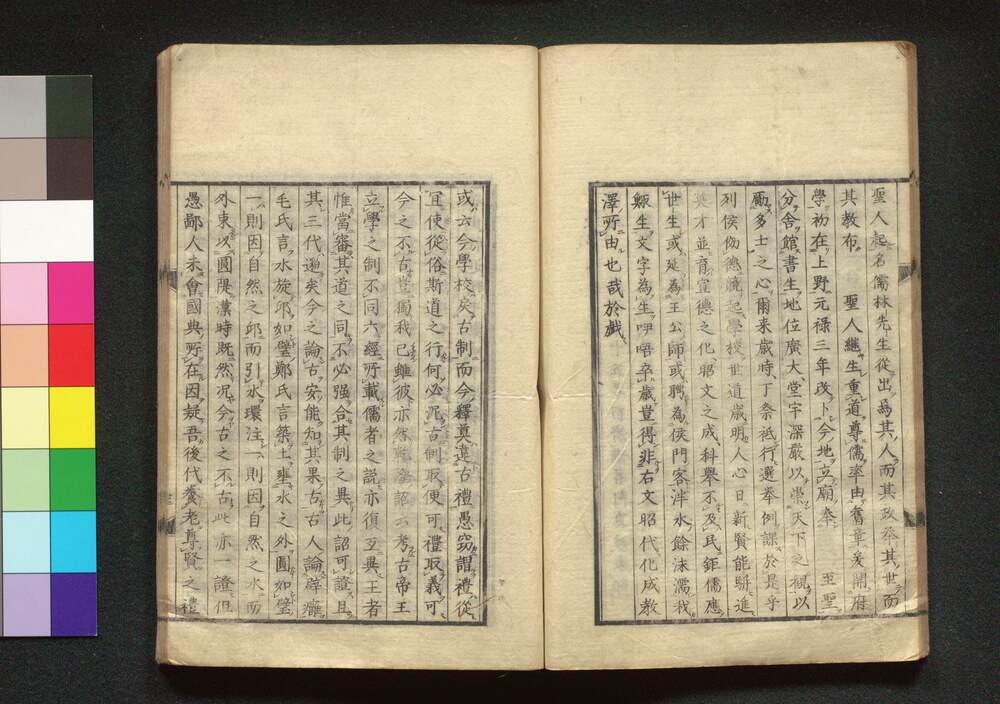 聖人起名儒林先生從出焉其人而其政奉其世而
其教布　聖人繼生重道尊儒率由舊章爰開府
學初在上野元祿三年改卜今地立廟奉　至聖
分舍館書生地位廣大堂宇深嚴以崇天下之觀以
勵多士之心爾来歲時丁祭祗行選挙例課於是乎
列侯傚德競起學校世道歲明人心日新賢能駢進
英才並育宣德之化昭文之成科舉不及民鉅儒應
世生或延為王公師或聘為侯門客泮水餘沫濡我
鯫生文字為生呻唔卒歲豈得非右文昭代化成教
澤所由也哉於戯
或云今學校矣古制而今釋奠違古禮愚窃謂禮從
宜使從俗斯道之行何必泥古制取便可禮取義可
今之不古豈獨我已雖彼亦然乾詔云考古帝王
立學之制不同六經所載儒者之説亦復互異王者
惟當審其道之同不必强合其制之異此詔可證且
其三代遄矣今之論古安能知其果古古人論辟廱
毛氏言水旋邱如璧鄭氏言築土壅水之外圓如璧
一則因自然之邱而引水環注一則因自然之水而
外束以圓隄漢時既然况今古之不古此亦一證但
愚鄙人未會國典所在因疑吾後代養老尊賢之禮